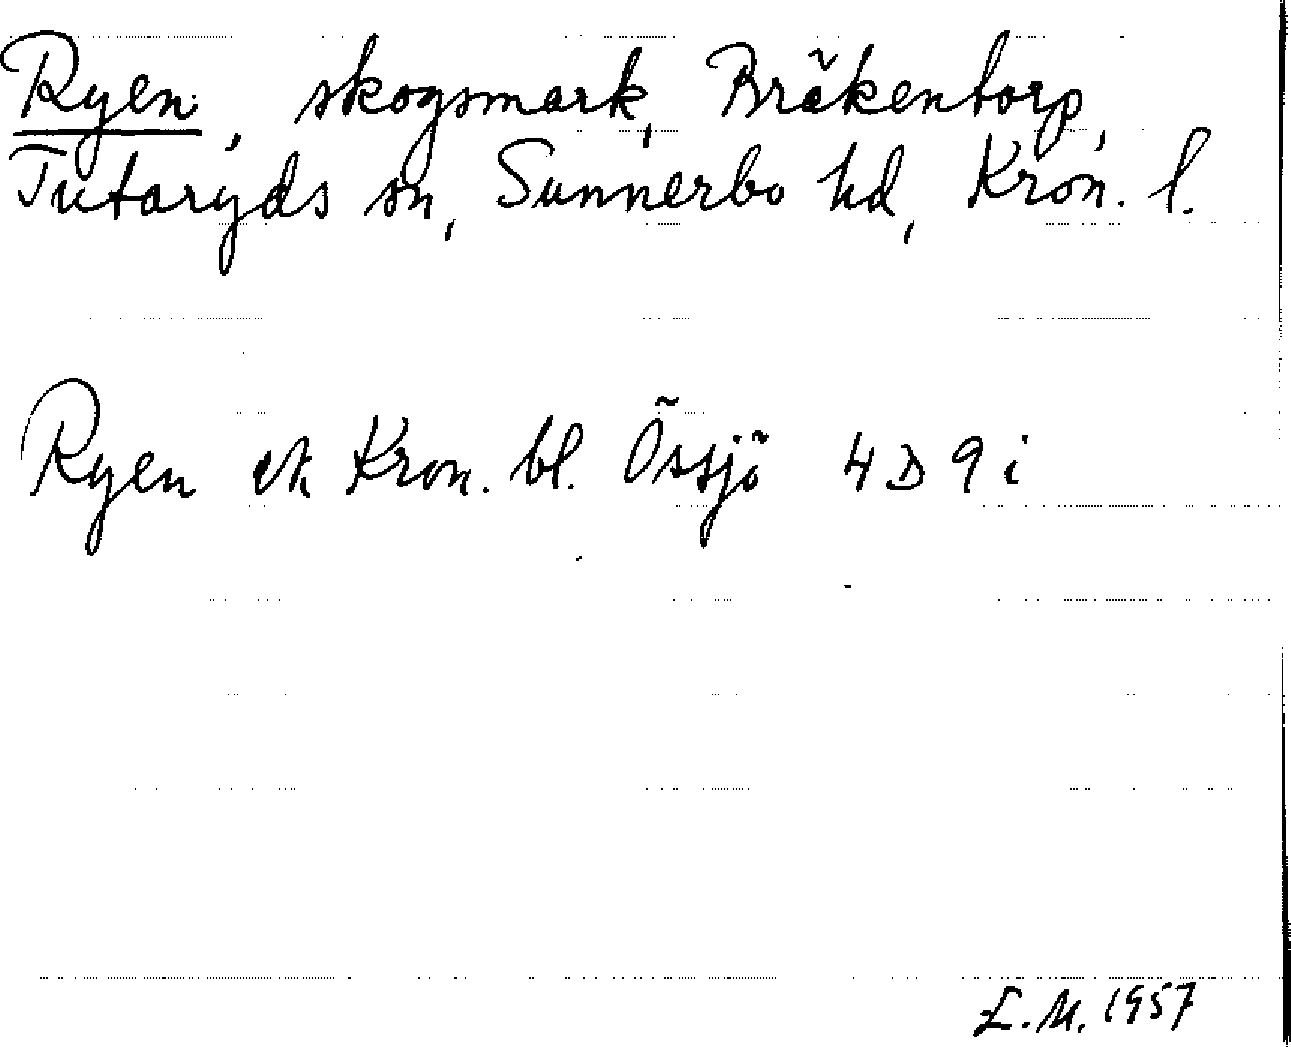 Ryen, skogsmark, Bräkentorp,
Tutaryds sn, Sunnerbo hd, Kron. l.
Ryen ek Kron. bl. Össjö 4D 9i
E.M. 1957